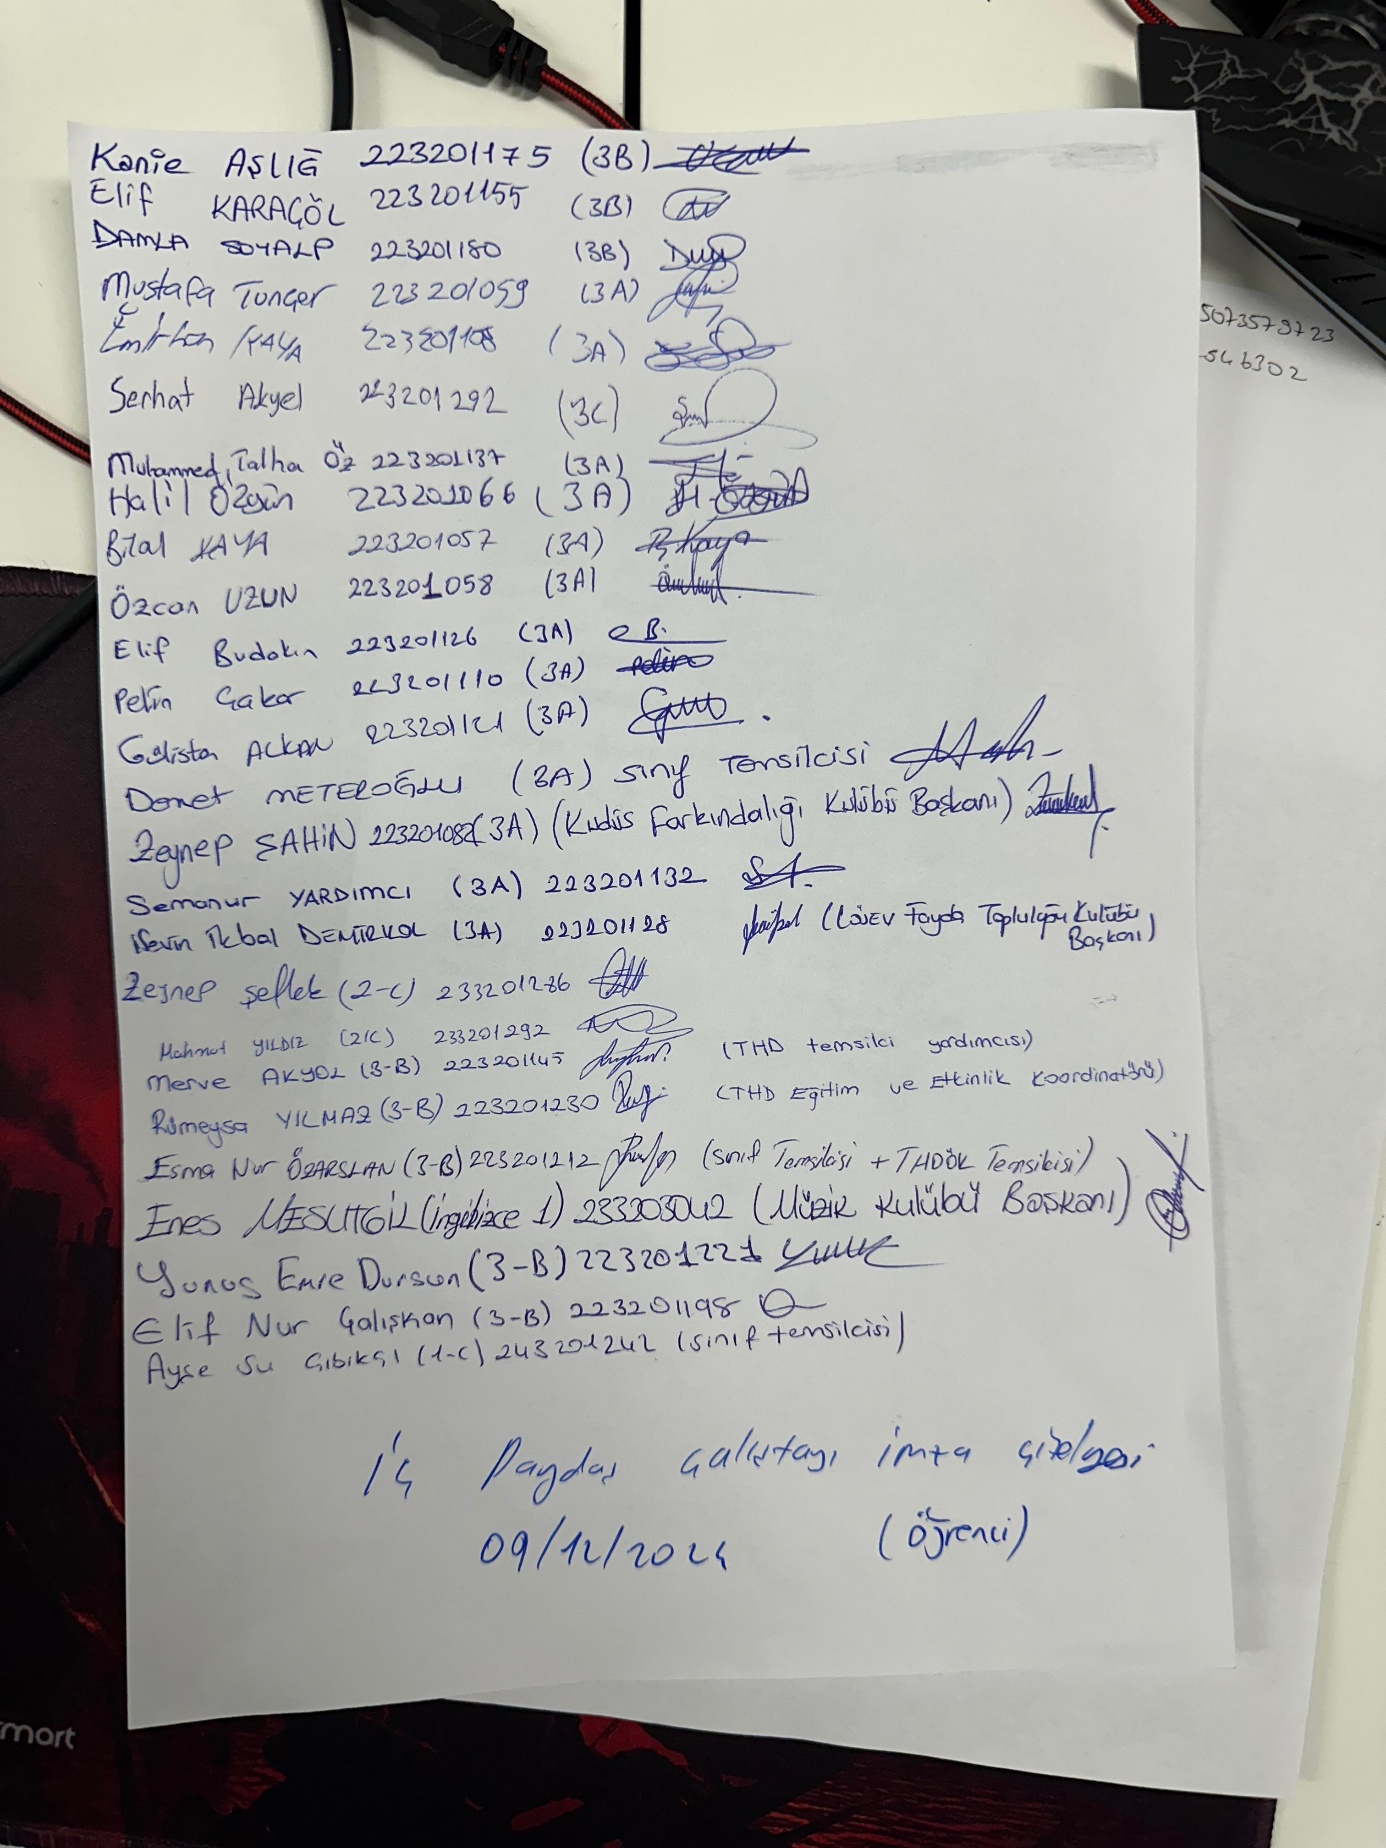 Kanie AŞLIĞ 223201175 (3B)
Elif KARAGÖL 223201155 (3B)
DAMLA SOYALP 223201180 (3B)
Mustafa Tunçer 223201059 (3A)
KAYA 223201108 (3A)
Serhat Akyel 213201292 (3C)
Muhammed Talha Öz 223201137 (3A)
Halil Özgün 223201066 (3A)
Bilal KAYA 223201057 (3A) B.Kaya
Özcan UZUN 223201058 (3A)
Elif Budakın 223201126 (3A) e B.
Pelin Çakar 223201110 (3A) Pelin
Gülistan ALKAN 223201121 (3A)
Demet METEROĞLU (3A) sınıf Temsilcisi
Zeynep ŞAHİN 223201082 (3A) (Kudüs Farkındalığı Kulübü Başkanı)
Semanur YARDIMCI (3A) 223201132
Nevin İkbal DEMİRKOL (3A) 223201128 (LÖSEV Fayda Topluluğu Kulübü
Başkanı)
Zeynep Şeflek (2-C) 233201286
Mahmut YILDIZ (2/C) 233201292
Merve AKYOL (3-B) 223201145 (THD temsilci yardımcısı)
Rümeysa YILMAZ (3-B) 223201230 (THD Eğitim ve Etkinlik Koordinatörü)
Esma Nur ÖZARSLAN (3-B) 223201212 (sınıf Temsilcisi + THDÖK Temsilcisi)
Enes MESUTGİL (İngilizce 1) 233203042 (Müzik Kulübü Başkanı)
Yunus Emre Dursun (3-B) 223201221
Elif Nur Çalışkan (3-B) 223201198
Ayşe Su Çıbıkçı (1-C) 243201242 (sınıf temsilcisi)
İç Paydaş Çalıştayı imza çizelgesi
09/12/2024 (Öğrenci)
5073579723
546302
mart